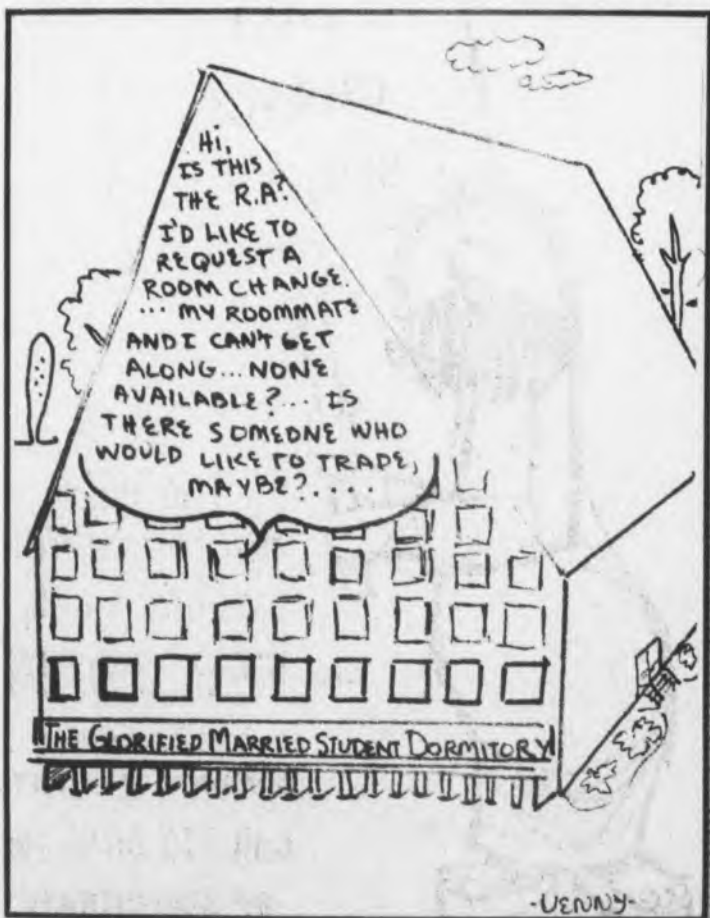 Hi,
IS THIS
THE R.A?
I'D LIKE TO
REQUEST A
ROOM CHANGE.
... MY ROOMMATE
AND I CAN'T GET
ALONG... NONE
AVAILABLE?... IS
THERE SOMEONE WHO
WOULD LIKE TO TRADE,
MAYBE?....
THE GLORIFIED MARRIED STUDENT DORMITORY
-VENNY-